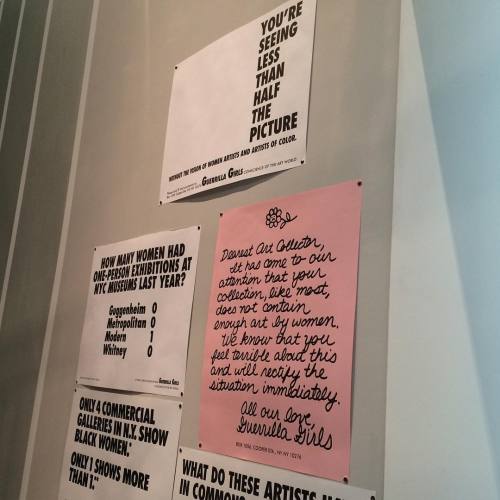 YOU'RE
SEEING
LESS
THAN
HALF
THE
PICTURE
WITHOUT THE VISION OF WOMEN ARTISTS AND ARTISTS OF COLOR.
GUERRILLA GIRLS CONSCIENCE OF THE ART WORLD
HOW MANY WOMEN HAD
ONE-PERSON EXHIBITIONS AT
NYC MUSEUMS LAST YEAR?
Guggenheim 0
Metropolitan 0
Modern 1
Whitney 0
GUERRILLA GIRLS
Dearest Art Collector,
It has come to our
attention that your
collection, like most,
does not contain
enough art by women.
We know that you
feel terrible about this
and will rectify the
situation immediately.
All our love,
Guerrilla Girls
BOX 1056, COOPER STA., NY, NY 10276
ONLY 4 COMMERCIAL
GALLERIES IN N.Y. SHOW
BLACK WOMEN.
ONLY 1 SHOWS MORE
THAN 1.
WHAT DO THESE ARTISTS
IN COMMON